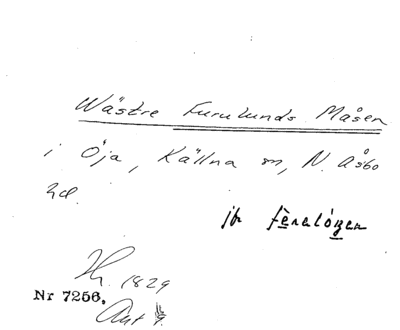 Wästre Furulunds Måsen
i Öja, Källna sn, N. Åsbo
hd.
jfr fèrelógen
Hy. 1829
Nr 7256. Akt 9.